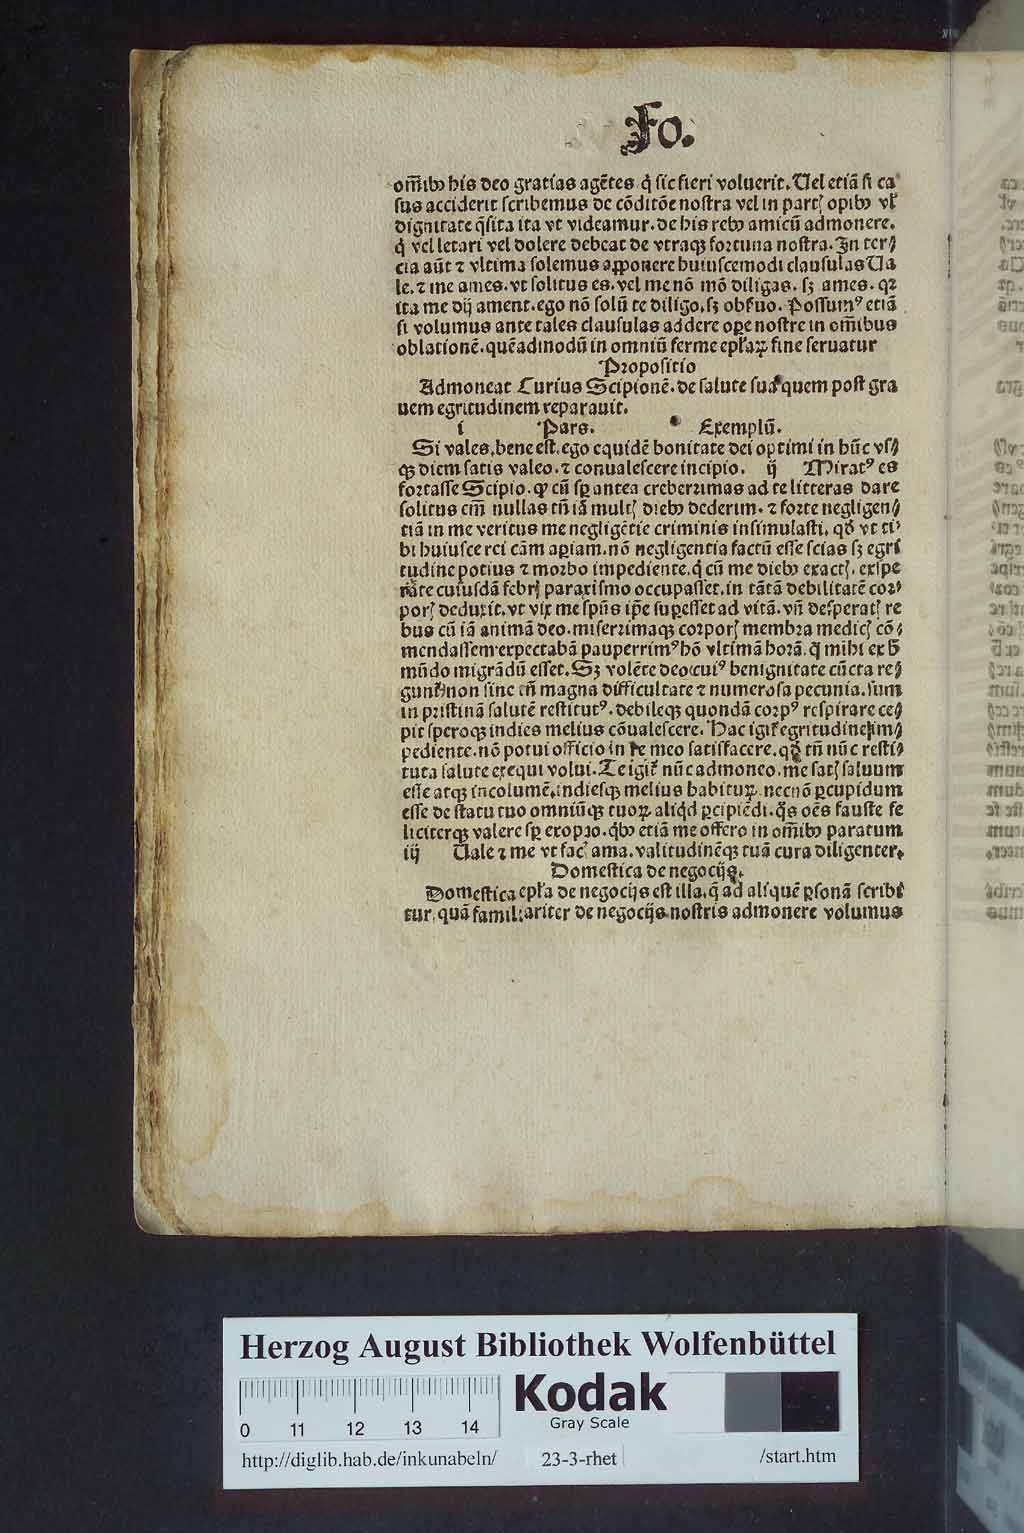 Fo.
om̄ibꝰ his deo gratias agētes q̇ sic fieri voluerit. Uel etiā si ca
sus acciderit scribemus de cōditōe nostra vel in partꝭ opibꝰ vł
dignitate q̄sita ita vt videamur. de his rebꝰ amicū admonere.
q̇ vel letari vel dolere debeat de vtraqꝫ fortuna nostra. In ter⸗
cia aūt ⁊ vltima solemus apponere huiuscemodi clausulas Ua
le. ⁊ me ames. vt solitus es. vel me nō mō diligas. sꝫ ames. qꝛ
ita me dij ament. ego nō solū te diligo. sꝫ obẜuo. Possumꝰ etiā
si volumus ante tales clausulas addere oꝑe nostre in om̄ibus
oblationē. quēadmodū in omniū ferme epłaꝝ fine seruatur
Propositio
Admoneat Curius Scipionē. de salute sua quem post gra
uem egritudinem reparauit.
i Pars. Exemplū.
Si vales, bene est. ego equidē bonitate dei optimi in hūc vs⸗
qꝫ diem satis valeo. ⁊ conualescere incipio. ij Miratꝰ es
fortasse Scipio. ꝙ cū sꝑ antea creberrimas ad te litteras dare
solitus em̄ nullas tn̄ iā multꝭ diebꝰ dederim. ⁊ forte negligen⸗
tiā in me veritus me negligētie criminis insimulasti. qđ vt ti⸗
bi huiusce rei cām aꝑiam. nō negligentia factū esse scias sꝫ egri
tudine potius ⁊ morbo impediente. q̇ cū me diebꝰ exactꝭ. exspe
rāte cuiusdā febrꝭ paraxismo occupasset. in tātā debilitatē cor⸗
porꝭ deduxit. vt vix me spūs ip̄e suꝑesset ad vitā. vn̄ desperatꝭ re
bus cū iā animā deo. miserrimaqꝫ corporꝭ membra medicꝭ cō⸗
mendassem expectabā pauperrimꝰ hō vltimā horā. q̄ mihi ex h̄
mūdo migrādū esset. Sꝫ volēte deo cuiꝰ benignitate cūcta re⸗
gunt᷑ non sine tn̄ magna difficultate ⁊ numerosa pecunia. sum
in pristinā salutē restitutꝰ. debileqꝫ quondā corpꝰ respirare ce⸗
pit speroqꝫ indies melius cōualescere. Hac igit᷑ egritudine im⸗
pediente. nō potui officio in te meo satisfacere. qđ tn̄ nūc resti⸗
tuta salute exequi volui. Te igit᷑ nūc admoneo. me satꝭ saluum
esse atqꝫ incolumē. indiesqꝫ melius habituꝝ. necnō ꝑcupidum
esse de statu tuo omniūqꝫ tuoꝝ aliq̇d ꝑcipiēdi. q̇s oēs fauste fe
liciterqꝫ valere sꝑ exopto. q̇bꝰ etiā me offero in om̄ibꝰ paratum
iij Uale ⁊ me vt facꝭ ama. valitudinēqꝫ tuā cura diligenter.
Domestica de negocijs.
Domestica epła de negocijs est illa. q̄ ad aliquē ꝑsonā scribi
tur, quā familiariter de negocijs nostris admonere volumus
Herzog August Bibliothek Wolfenbüttel
0 11 12 13 14
Kodak
Gray Scale
http://diglib.hab.de/inkunabeln/ 23-3-rhet /start.htm